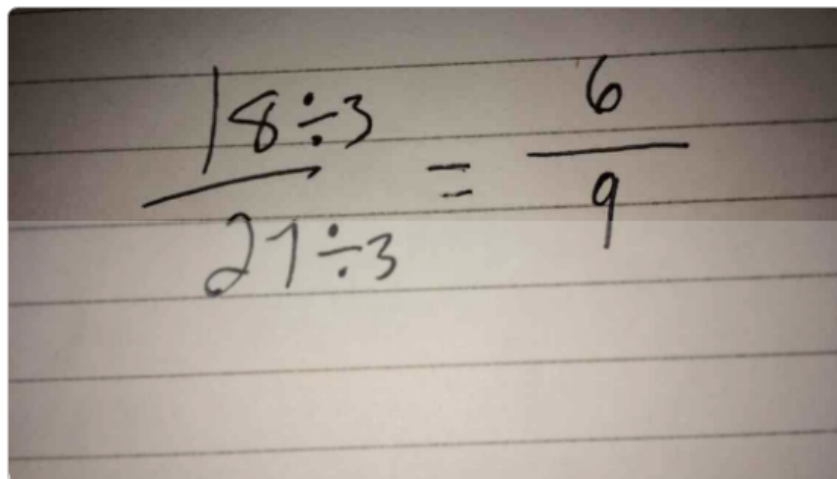 18÷3
27÷3
=
6
9